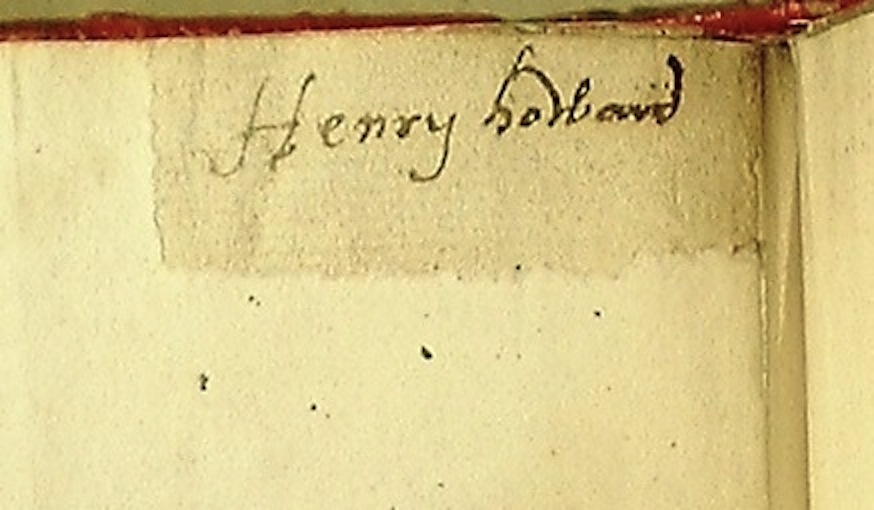 Henry holland